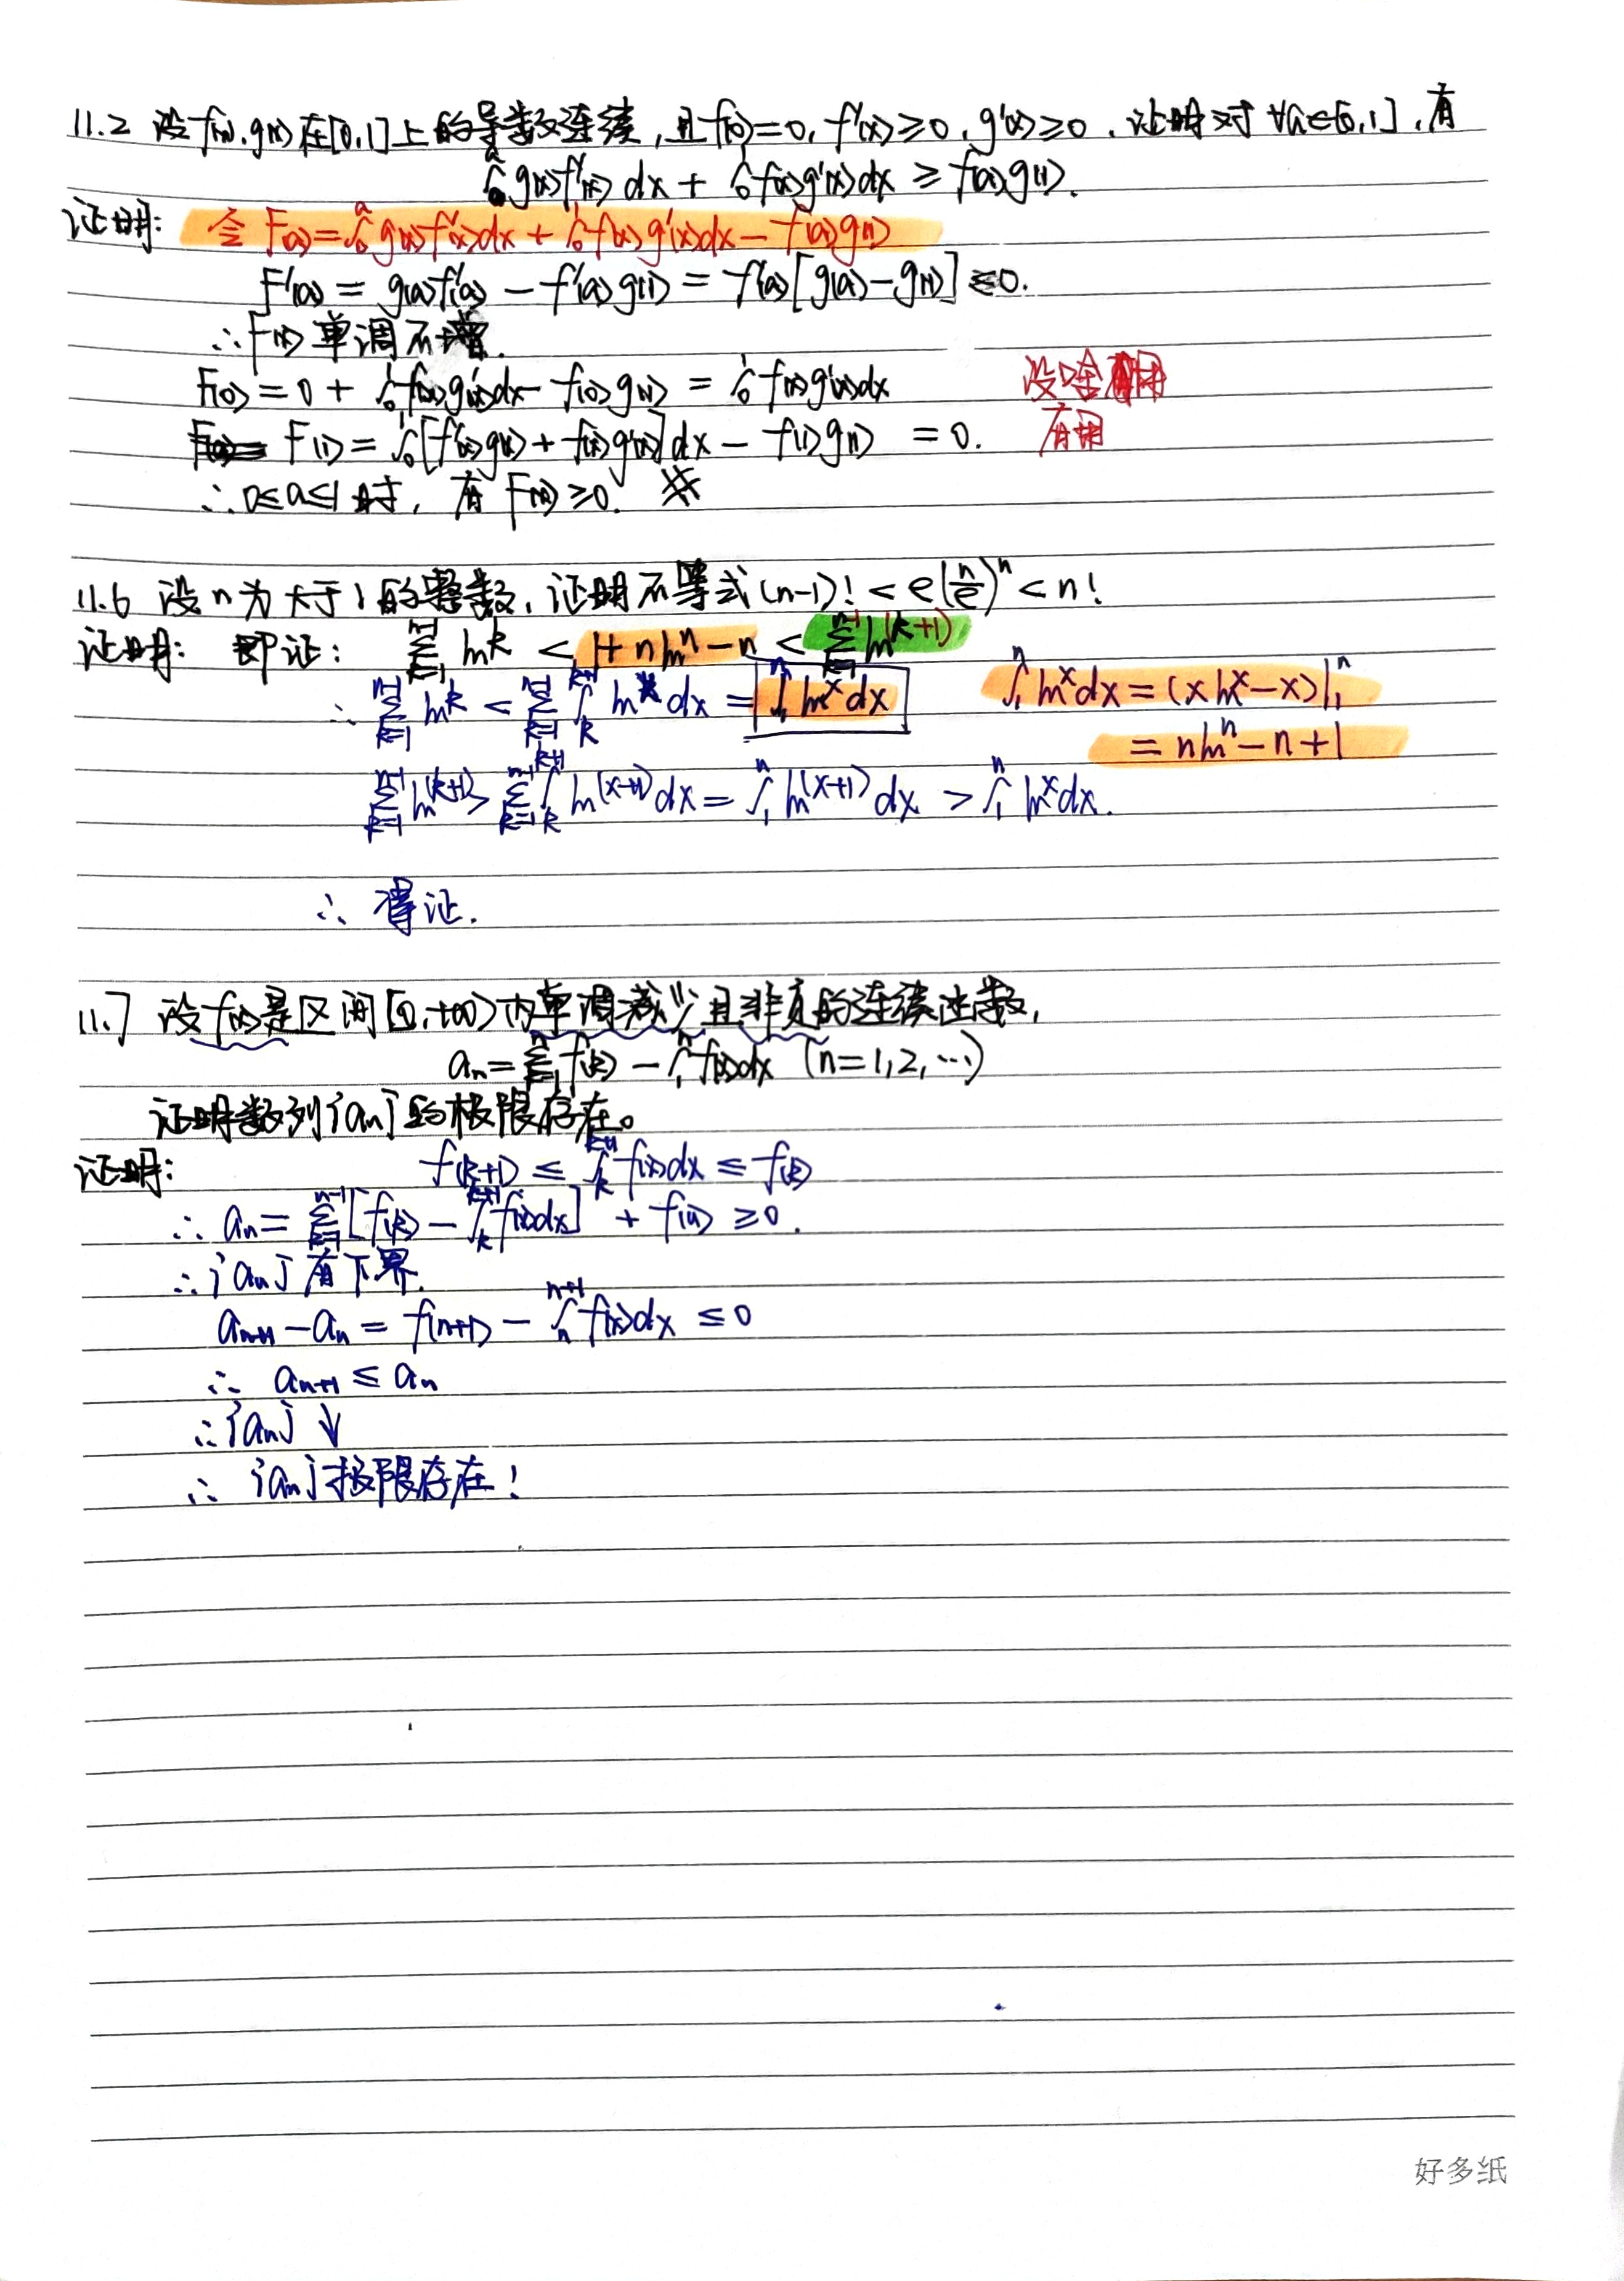 11.2 设f(x),g(x)在[0,1]上的导数连续,且f(0)=0,f'(x)≥0,g'(x)≥0,证明对∀a∈[0,1],有
∫₀ᵃg(x)f'(x)dx+∫₀¹f(x)g'(x)dx≥f(a)g(1).
证明: 令F(a)=∫₀ᵃg(x)f'(x)dx+∫₀¹f(x)g'(x)dx-f(a)g(1)
F'(a)=g(a)f'(a)-f'(a)g(1)=f'(a)[g(a)-g(1)]≤0.
∴F(x)单调不增.
F(0)=0+∫₀¹f(x)g'(x)dx-f(0)g(1)=∫₀¹f(x)g'(x)dx 没啥用
F(1)=∫₀¹[f'(x)g(x)+f(x)g'(x)]dx-f(1)g(1)=0. 有用
∴0≤a≤1时,有F(a)≥0.
11.6 设n为大于1的整数,证明不等式(n-1)!<e(n/e)ⁿ<n!
证明: 即证: ∑ₖ₌₁ⁿ⁻¹lnk<1+nlnn-n<∑ₖ₌₁ⁿ⁻¹ln(k+1)
∴∑ₖ₌₁ⁿ⁻¹lnk<∑ₖ₌₁ⁿ⁻¹∫ₖᵏ⁺¹lnxdx=∫₁ⁿlnxdx ∫₁ⁿlnxdx=(xlnx-x)|₁ⁿ
=nlnn-n+1
∑ₖ₌₁ⁿ⁻¹ln(k+1)>∑ₖ₌₁ⁿ⁻¹∫ₖᵏ⁺¹ln(x+1)dx=∫₁ⁿln(x+1)dx>∫₁ⁿlnxdx.
∴得证.
11.7 设f(x)是区间[0,+∞)内单调减少且非负的连续函数,
aₙ=∑ₖ₌₁ⁿf(k)-∫₁ⁿf(x)dx (n=1,2,…)
证明数列{aₙ}的极限存在。
证明: f(k+1)≤∫ₖᵏ⁺¹f(x)dx≤f(k)
∴aₙ=∑ₖ₌₁ⁿ⁻¹[f(k)-∫ₖᵏ⁺¹f(x)dx]+f(n)≥0.
∴{aₙ}有下界.
aₙ₊₁-aₙ=f(n+1)-∫ₙⁿ⁺¹f(x)dx≤0
∴aₙ₊₁≤aₙ
∴{aₙ}↓
∴{aₙ}极限存在!
好多纸